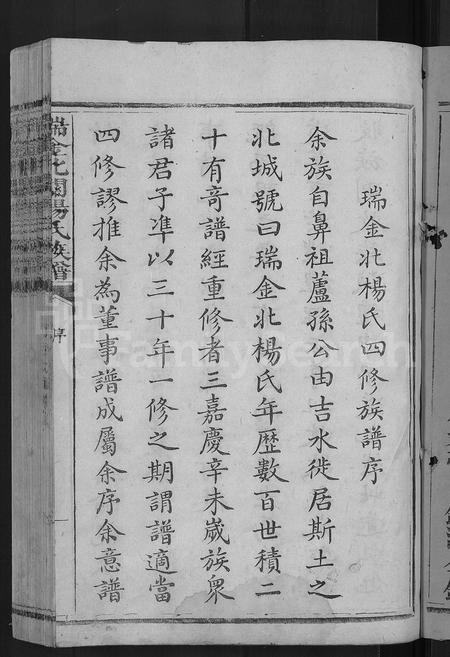 瑞金北楊氏四修族譜序
余族自鼻祖蘆孫公由吉水徙居斯土之
北城號曰瑞金北楊氏年歷數百世積二
十有奇譜經重修者三嘉慶辛未歲族衆
諸君子準以三十年一修之期謂譜適當
四修謬推余為董事譜成屬余序余意譜
楊氏族譜
序
FamilySearch